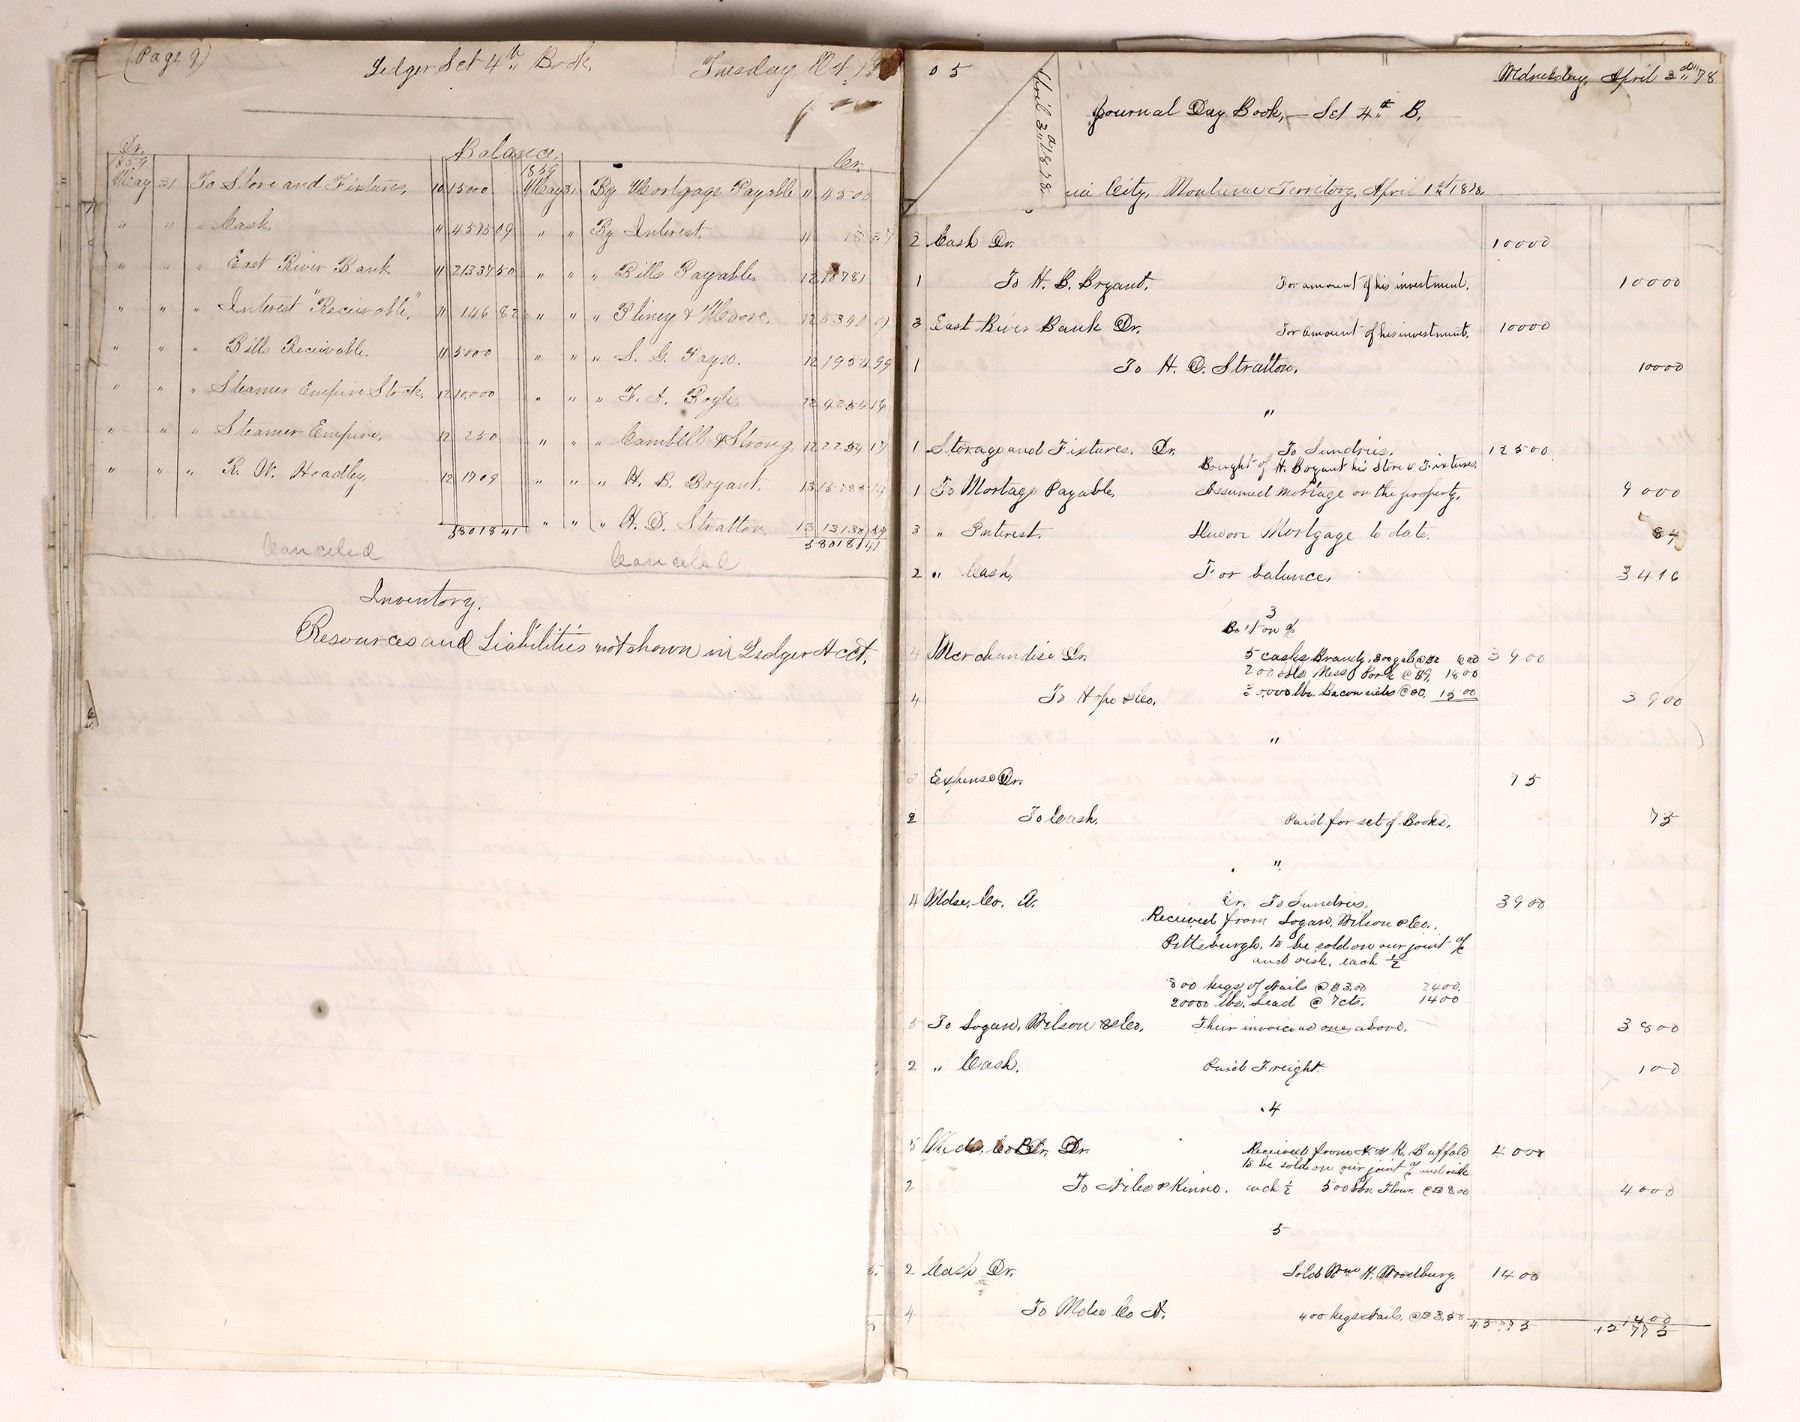 (Page 9)
Ledger Set 4th Book.
Tuesday
Dr.
Balance.
Cr.
1859
1859
May 31 To Store and Fixtures, 10 15000
May 31 By Mortgage Payable 11 4500
" " " Cash. 11 4575 09
" " By Interest. 11 18 37
" " " East River Bank 11 21337 50
" " " Bills Payable 12
" " " Interest "Receivable", 11 146 82
" " " Pliney & Moore. 12 5390 01
" " " Bills Receivable. 11 5000
" " " S. G. Payn. 12 1954 99
" " " Steamer Empire Stock. 12 10,000
" " " F. A. Boyle 12 4254 16
" " " Steamer Empire, 12 250
" " " Cambell & Strong 12 2254 17
" " " R. W. Hoadley, 12 1709
" " " H. B. Bryant. 13
" " " H. D. Stratton. 13
58018 41
58018 41
Canceled
Canceled
Inventory.
Resources and Liabilities not shown in Ledger Acct.
05
Wednesday, April 3rd 78
April 3rd 1878
Journal Day Book, — Set 4th B.
City, Montana Territory, April 1st 1878
2 Cash Dr. 10000
1 To H. B. Bryant, For amount of his investment. 10000
3 East River Bank Dr. For amount of his investment. 10000
1 To H. D. Stratton. 10000
"
1 Storage and Fixtures. Dr. To Sundries. 12500
Bought of H. Bryant his Store & Fixtures
1 To Mortage Payable, Assumed mortage on the property. 9000
3 " Interest. Due on Mortgage to date. 84
2 " Cash, For balance, 3416
3
Bo't on a/c
4 Merchandise Dr. 5 casks Brandy, 300 gals @ $2 600 3900
200 bbls Mess Pork @ $9. 1800
1500
4 To Hope & Co. 3900
"
3 Expense Dr. 75
2 To Cash. Paid for set of Books. 75
"
4 Mdse. Co. A. Dr. To Sundries. 3900
Received from Logan, Wilson & Co.,
Pittsburgh, to be sold on our joint a/c
and risk, each 1/2
800 kegs of Nails @ $3.00 2400.
20000 lbs. Lead @ 7cts. 1400
5 To Logan, Wilson & Co. Their invoice as above. 3800
2 " Cash. Paid Freight. 100
4
5 Mdse. Co. B. Dr. Received from N & K, Buffalo 4000
to be sold on our joint a/c and risk
2 To Niles & Kinne. each 1/2 500 bbls. Flour. @ $8 00 4000
5
2 Cash Dr. Sold Wm. H. Woodbury. 1400
4 To Mdse Co A. 400 kegs Nails, @ $3.50 1400
45775 45775